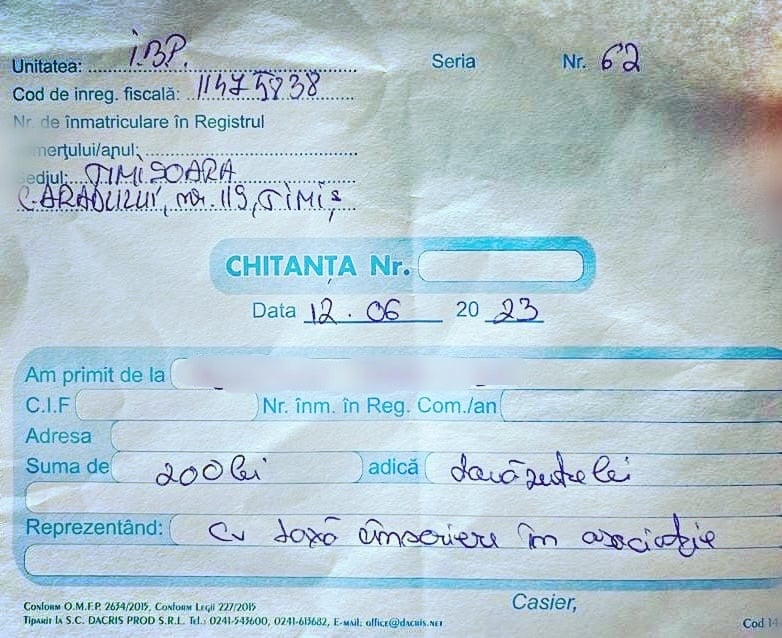 Unitatea: I.B.P. Seria Nr. 62
Cod de inreg. fiscală: 11475838
Nr. de înmatriculare în Registrul
merţului/anul:
ediul: TIMISOARA
C. ARADULUI, nr. 119, TIMIȘ
CHITANȚA Nr.
Data 12.06 20 23
Am primit de la
C.I.F Nr. înm. în Reg. Com./an
Adresa
Suma de 200 lei adică două sute lei
Reprezentând: Cv taxă înscriere în asociație
Casier,
Conform O.M.F.P. 2634/2015, Conform Legii 227/2015
Tipărit la S.C. DACRIS PROD S.R.L. Tel.: 0241-543600, 0241-613682, E-mail: office@dacris.net
Cod